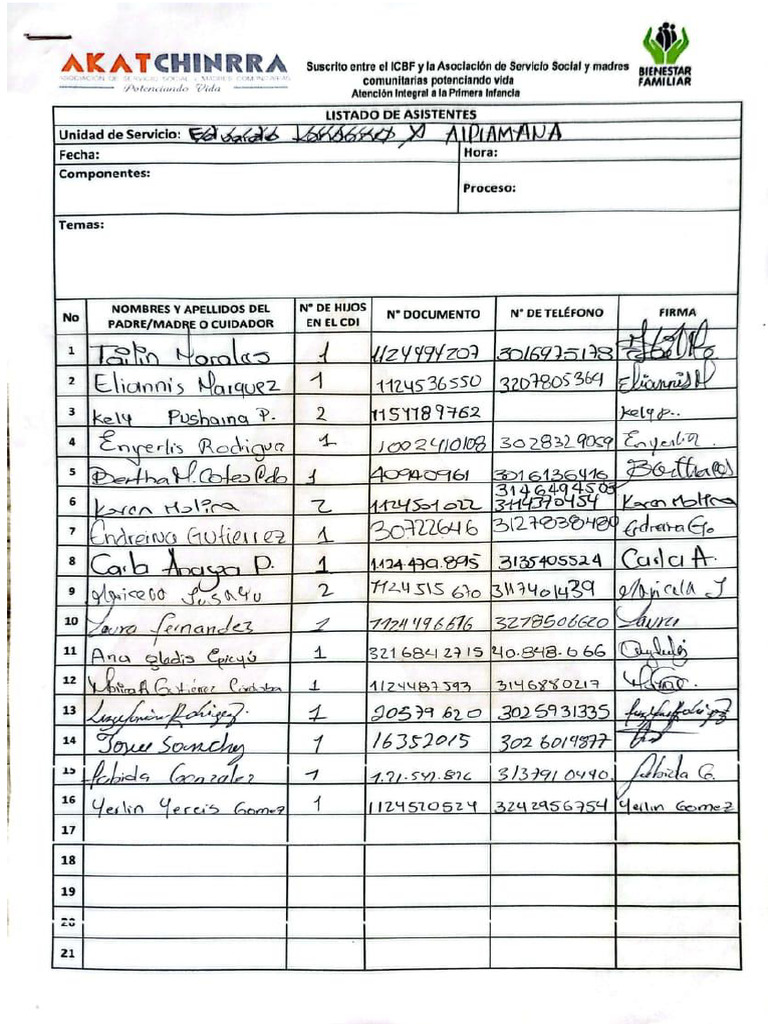 AKATCHINRRA
ASOCIACIÓN DE SERVICIO SOCIAL Y MADRES COMUNITARIAS
Potenciando Vida
Suscrito entre el ICBF y la Asociación de Servicio Social y madres
comunitarias potenciando vida
Atención Integral a la Primera Infancia
BIENESTAR
FAMILIAR
LISTADO DE ASISTENTES
Unidad de Servicio: AIPIAMANA
Fecha: Hora:
Componentes: Proceso:
Temas:
No NOMBRES Y APELLIDOS DEL PADRE/MADRE O CUIDADOR N° DE HIJOS EN EL CDI N° DOCUMENTO N° DE TELÉFONO FIRMA
1 Tailin Morales 1 1124494207 3016975178
2 Eliannis Marquez 1 1124536550 3207805364 Eliannis M
3 Kely Pushaina P. 2 1151189762 Kely p..
4 Enyerlis Rodigua 1 1002410108 3028329069 Enyerlis
5 Bertha M. Cotes 1 40940961 3016136416 Bertha
6 Karen Molina 2 1124501022 3146494503 3114370454 Karen Molina
7 Endreina Gutierrez 1 30722646 3127838480
8 Carla Apaza P. 1 1.124.479.895 3135405524 Carla A.
9 2 1124515670 3117401439 Maricela J
10 Laura Fernandez 1 1124496616 3278506620 Laura
11 Ana Gladis Epieyú 1 3216842715 40.848.066
12 Maira A Gutiérrez Córdoba 1 1124487593 3146880217
13 Rodriguez 1 20579620 3025931335 Rodriguez
14 Josue Sanchez 1 16352015 3026019877
15 Fabida Gonzalez 1 3137910440 Fabida G.
16 Yerlin Yercis Gomez 1 1124520524 3242956754 Yerlin Gomez
17
18
19
20
21